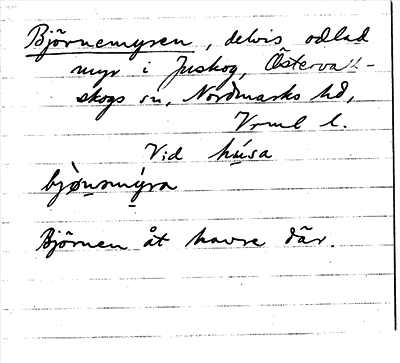 Björnemyren, delvis odlad
myr i Juskog, Österva
skogs sn, Nordmarks hd,
Vrml l.
Vid húsa
bjö̀nsmýra
Björnen åt havre där.